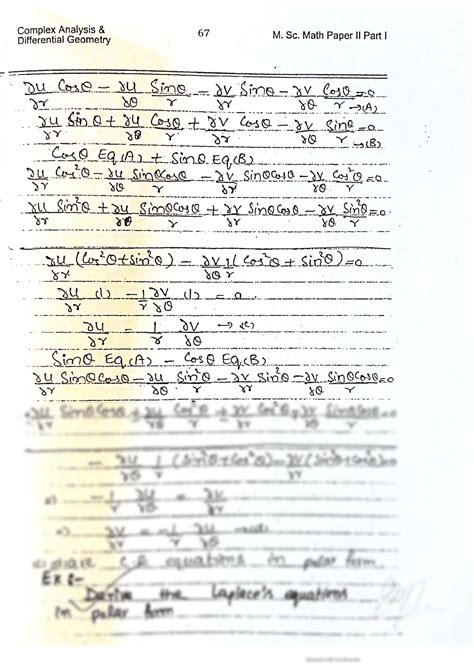 Complex Analysis &
Differential Geometry
67
M. Sc. Math Paper II Part I
∂u/∂r Cosθ − ∂u/∂θ Sinθ/r − ∂v/∂r Sinθ − ∂v/∂θ Cosθ/r = 0 →(A)
∂u/∂r Sinθ + ∂u/∂θ Cosθ/r + ∂v/∂r Cosθ − ∂v/∂θ Sinθ/r = 0 →(B)
Cosθ Eq(A) + Sinθ Eq(B)
∂u/∂r Cos²θ − ∂u/∂θ SinθCosθ/r − ∂v/∂r SinθCosθ − ∂v/∂θ Cos²θ/r = 0
∂u/∂r Sin²θ + ∂u/∂θ SinθCosθ/r + ∂v/∂r SinθCosθ − ∂v/∂θ Sin²θ/r = 0
∂u/∂r (Cos²θ + Sin²θ) − ∂v/∂θ 1/r (Cos²θ + Sin²θ) = 0
∂u/∂r (1) − 1/r ∂v/∂θ (1) = 0
∂u/∂r = 1/r ∂v/∂θ → (C)
Sinθ Eq(A) − Cosθ Eq(B)
∂u/∂r SinθCosθ − ∂u/∂θ Sin²θ/r − ∂v/∂r Sin²θ − ∂v/∂θ SinθCosθ/r = 0
− ∂u/∂θ 1/r (Sin²θ + Cos²θ) − ∂v/∂r (Sin²θ + Cos²θ) = 0
⇒ − 1/r ∂u/∂θ = ∂v/∂r
⇒ ∂v/∂r = − 1/r ∂u/∂θ
are C.R equations in polar form
Ex :-
Derive the Laplace's equations
in polar form